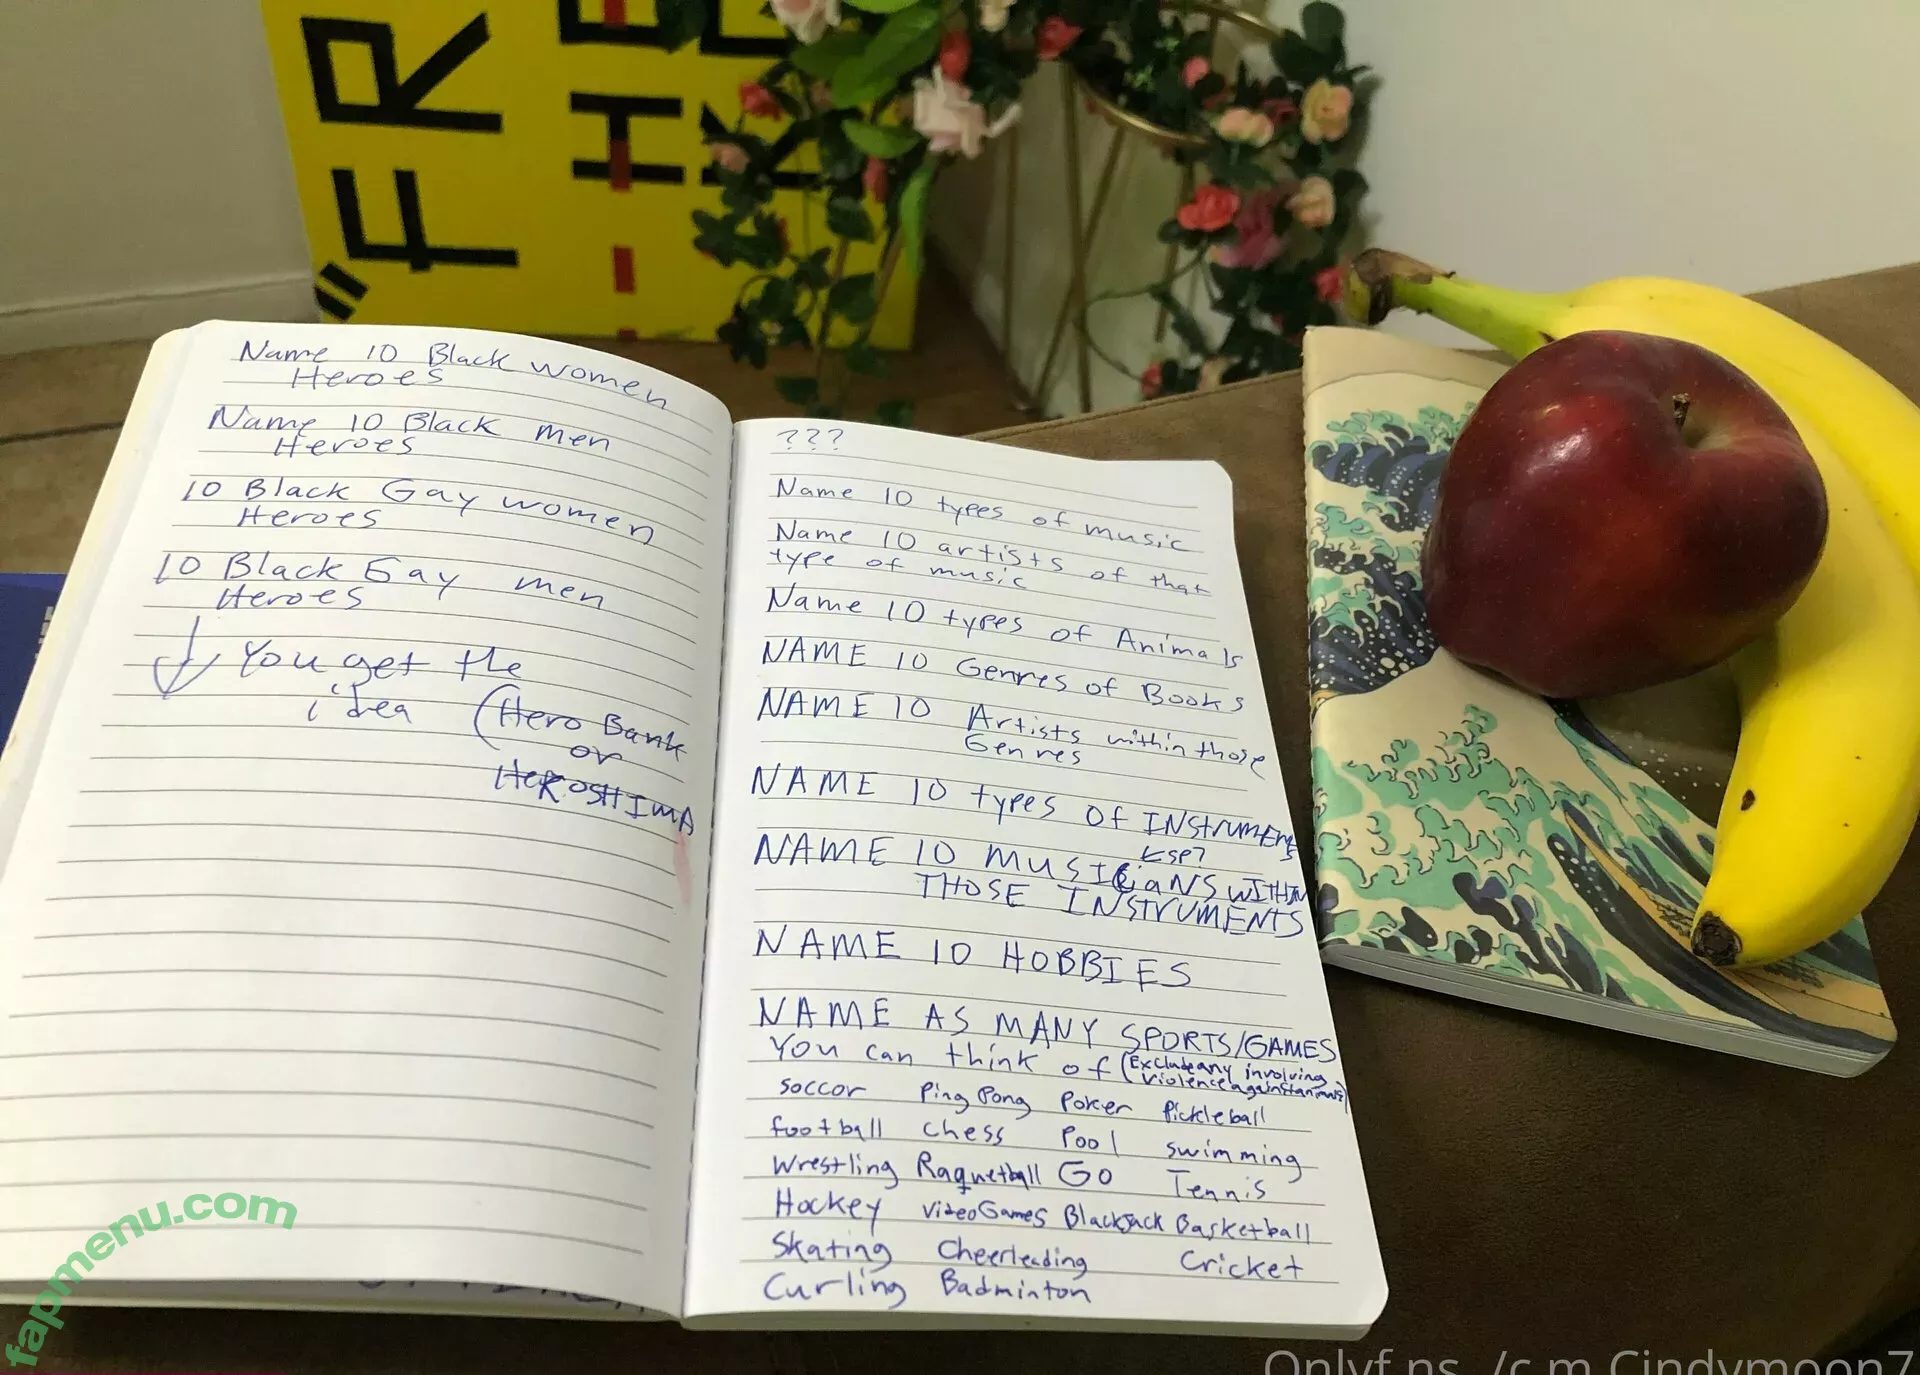 "FR
Name 10 Black women
Heroes
Name 10 Black men
Heroes
10 Black Gay women
Heroes
10 Black Gay men
Heroes
You get the
idea (Hero Bank
or
HEROSHIMA
???
Name 10 types of music
Name 10 artists of that
type of music
Name 10 types of Animals
NAME 10 Genres of Books
NAME 10 Artists within those
Genres
NAME 10 types of INSTRUMENTS
NAME 10 MUSICIANS WITHIN
THOSE INSTRUMENTS
NAME 10 HOBBIES
NAME AS MANY SPORTS/GAMES
You can think of (Exclude any involving
violence against animals)
soccor Ping Pong Poker Pickleball
football chess Pool swimming
Wrestling Raquetball GO Tennis
Hockey VideoGames Blackjack Basketball
Skating Cheerleading Cricket
Curling Badminton
fapmenu.com
Onlyf ns /c m Cindymoon7